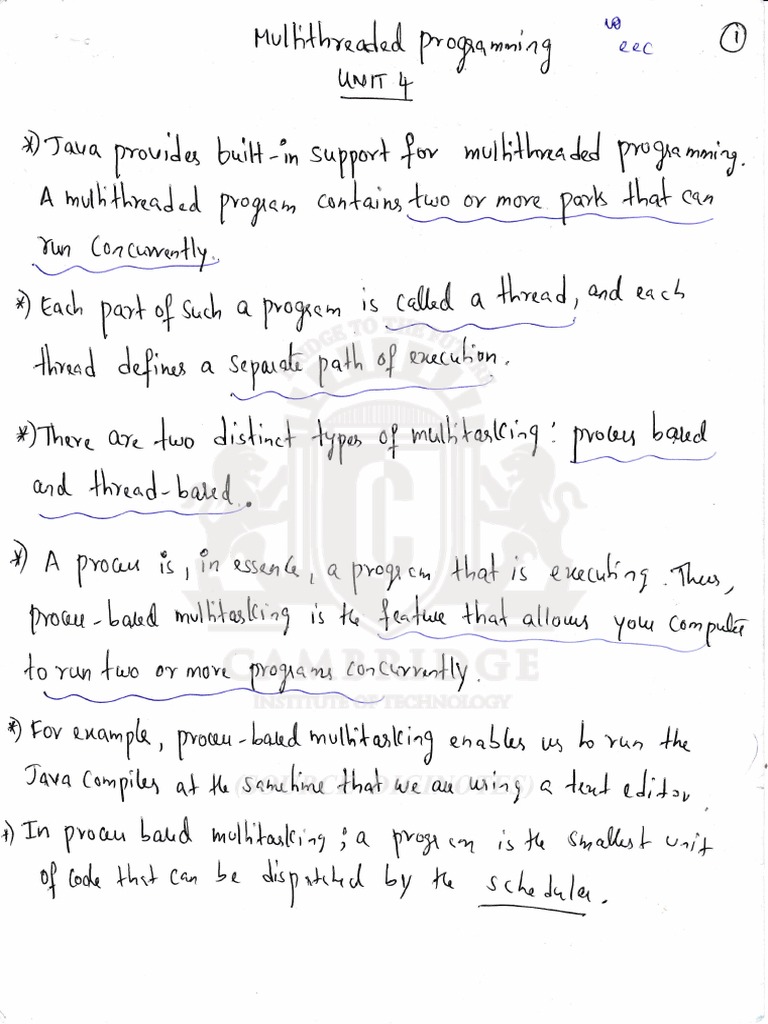 Multithreaded programming
eec
1
UNIT 4
*) Java provides built-in support for multithreaded programming.
A multithreaded program contains two or more parts that can
run concurrently.
*) Each part of such a program is called a thread, and each
thread defines a separate path of execution.
*) There are two distinct types of multitasking: process based
and thread-based.
*) A process is, in essence, a program that is executing. Thus,
process-based multitasking is the feature that allows your computer
to run two or more programs concurrently.
CAMBRIDGE
INSTITUTE OF TECHNOLOGY
*) For example, process-based multitasking enables us to run the
Java Compiler at the sametime that we are using a text editor.
(SOURCE DIGINOTES)
*) In process based multitasking; a program is the smallest unit
of code that can be dispatched by the scheduler.